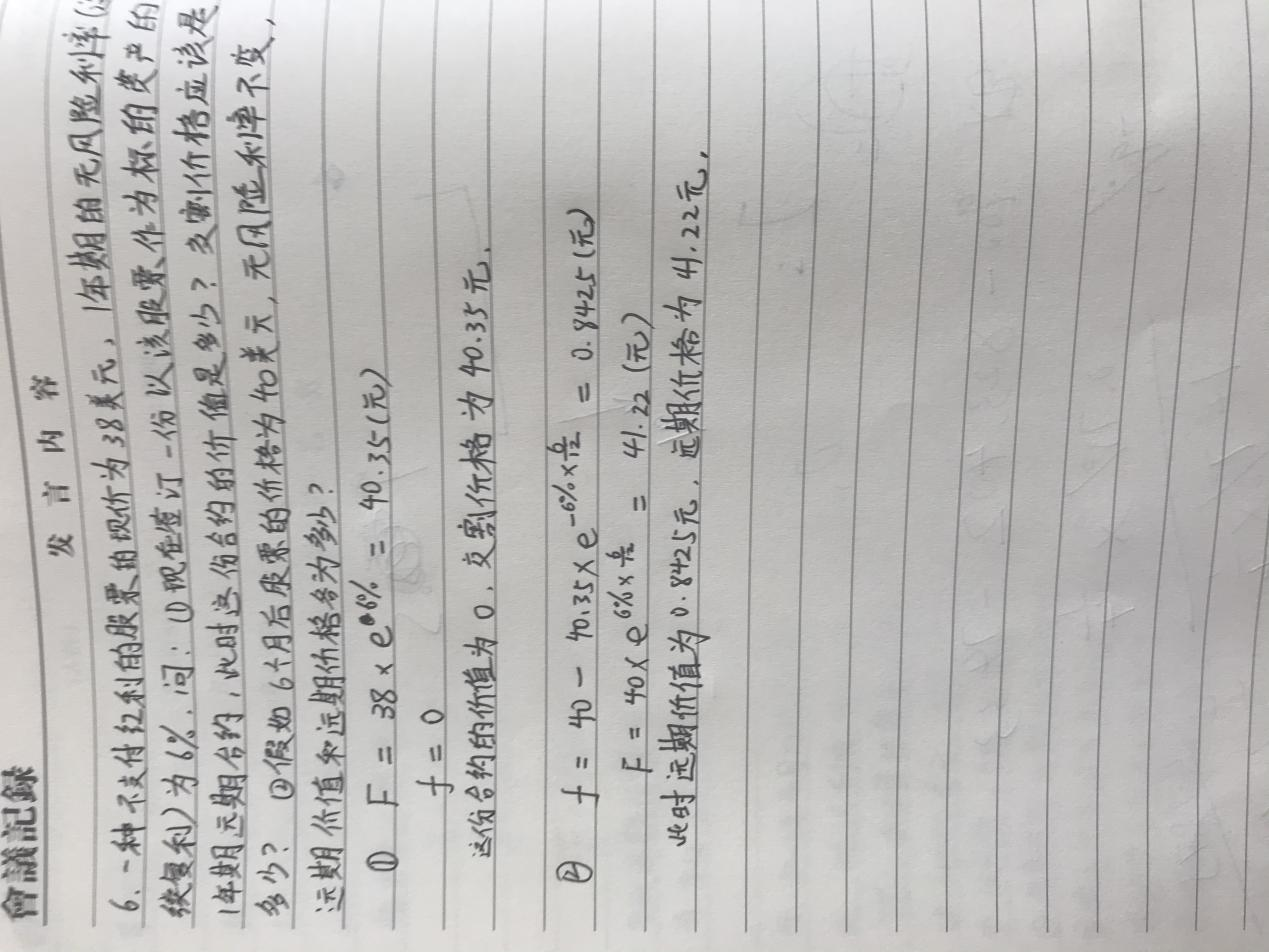 會議記録
发言内容
6.一种不支付红利的股票的现价为38美元,1年期的无风险利率(
续复利)为6%,问:①现在签订一份以该股票作为标的资产的
1年期远期合约,此时这份合约的价值是多少?交割价格应该是
多少?②假如6个月后股票的价格为40美元,无风险利率不变,
远期价值和远期价格各为多少?
① F = 38 × e^6% = 40.35(元)
f = 0
这份合约的价值为0,交割价格为40.35元.
② f = 40 - 40.35 × e^-6%×6/12 = 0.8425(元)
F = 40 × e^6%×6/12 = 41.22(元)
此时远期价值为0.8425元,远期价格为41.22元,